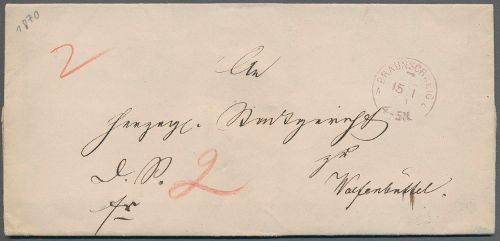 1870
2
An
BRAUNSCHWEIG
15 1
herzogl. Stadtgericht
zu
D. S. 2
Wolfenbüttel.
fr